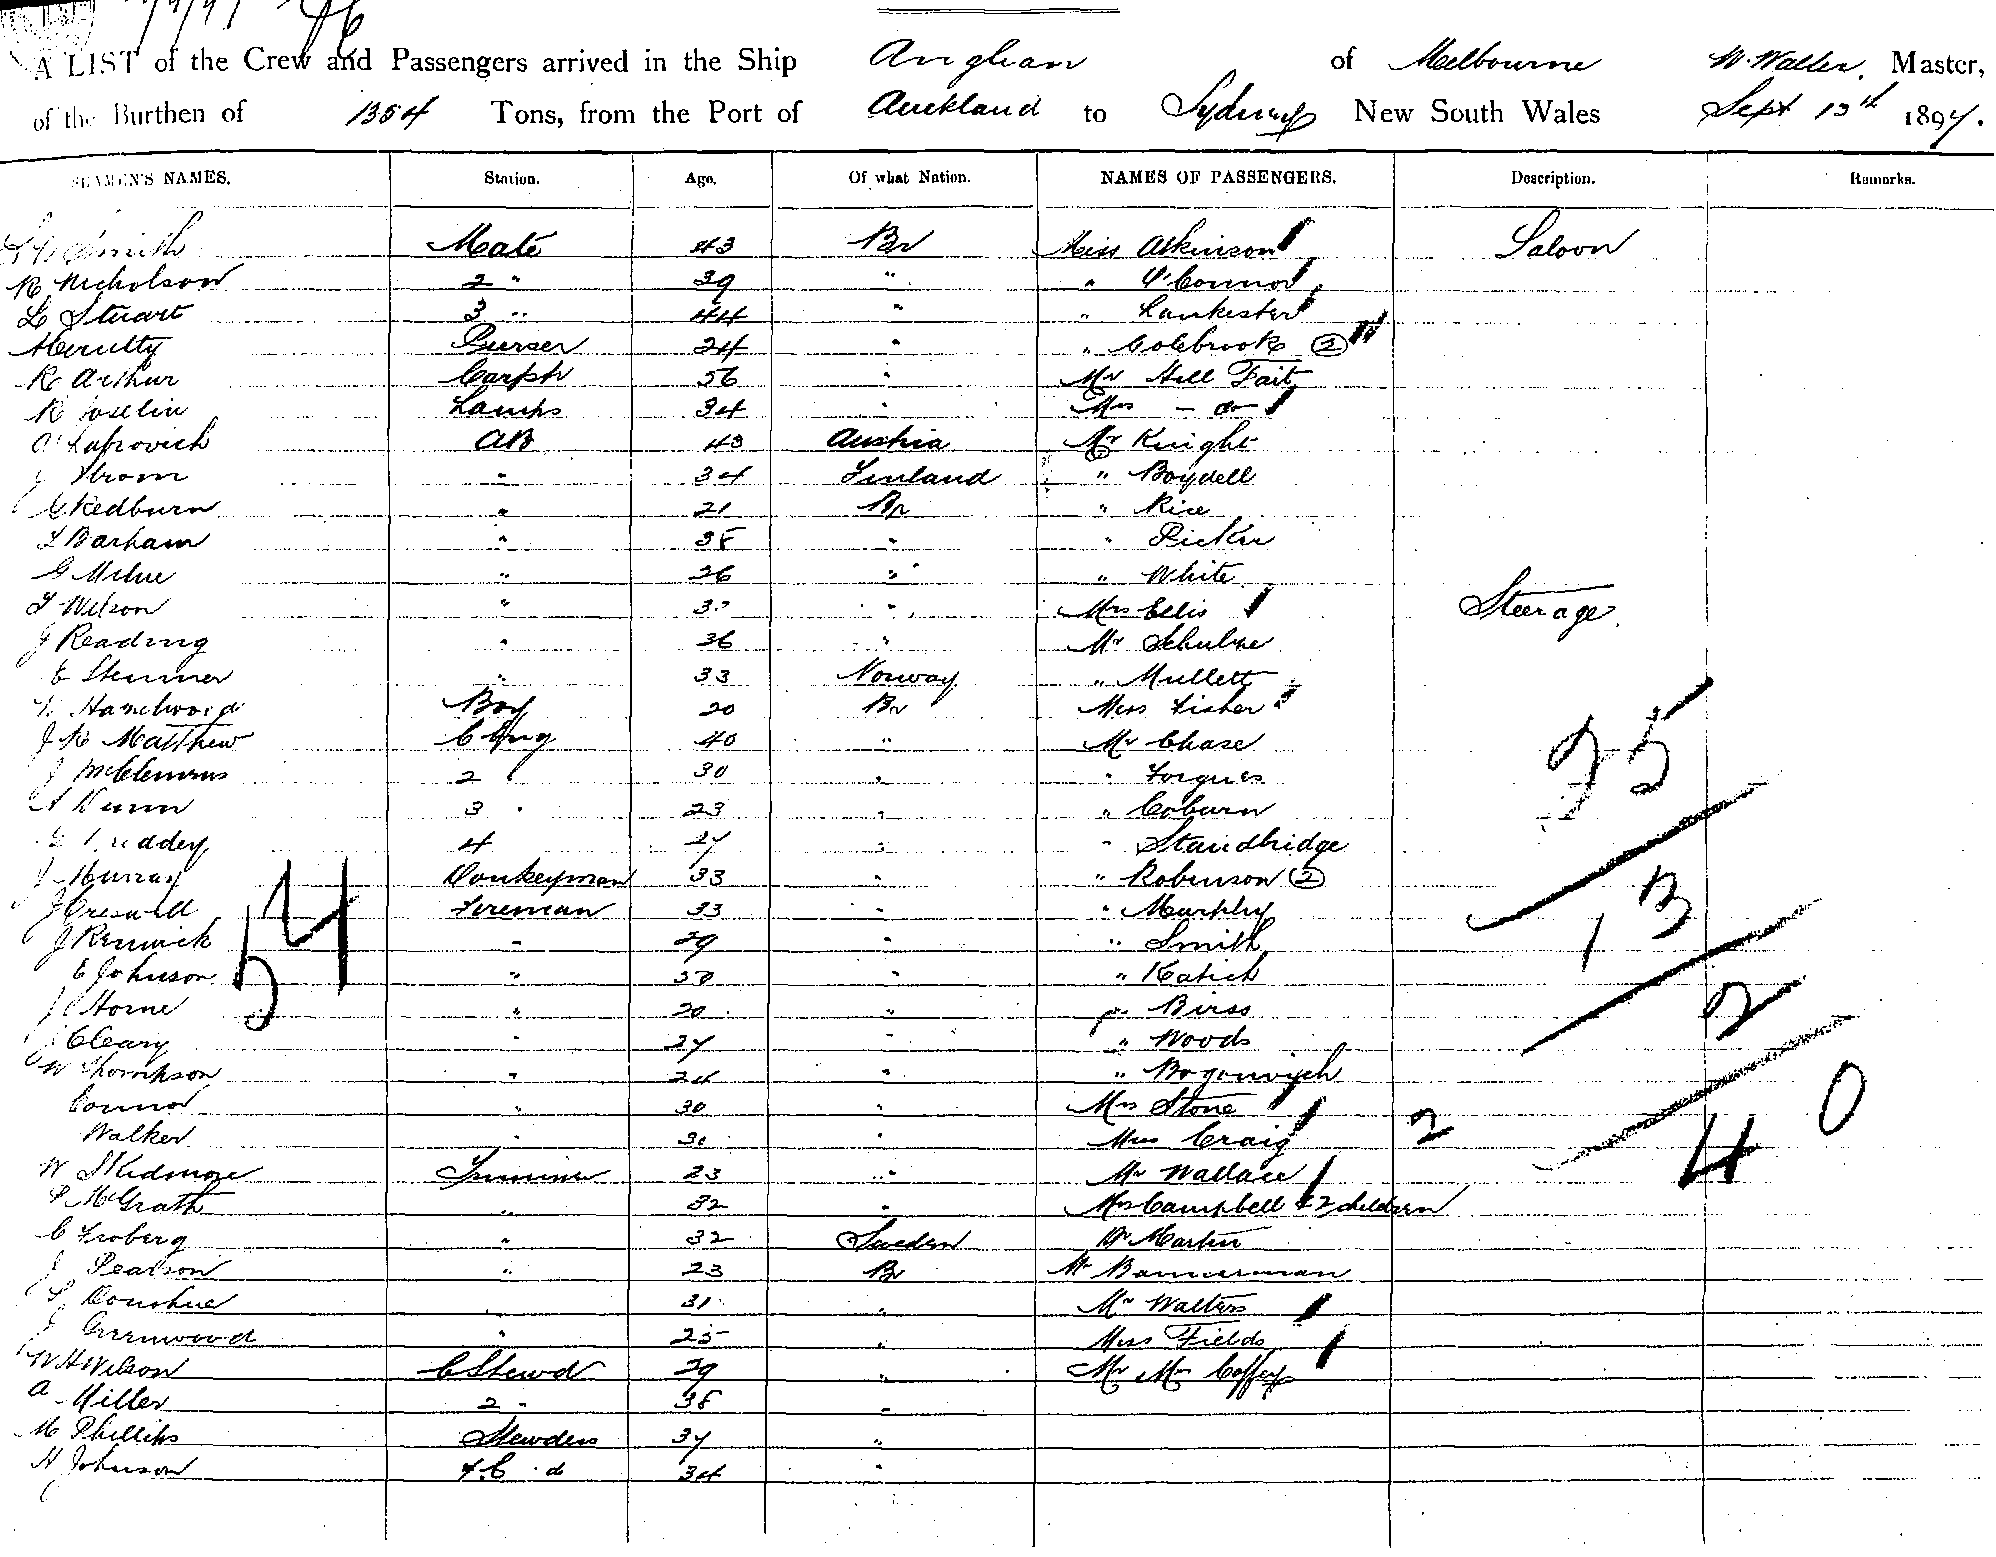 A LIST of the Crew and Passengers arrived in the Ship Anglian of Melbourne W. Waller, Master,
of the Burthen of 1354 Tons, from the Port of Auckland to Sydney New South Wales Sept 13th 1897.
SEAMEN'S NAMES. Station. Age. Of what Nation. NAMES OF PASSENGERS. Description. Remarks.
Smith Mate 43 Br Miss Atkinson Saloon
R Nicholson 2 " 39 " " O'Connor
L Stuart 3 " 44 " " Lankester
Purser 24 " " Colebrook 2
R Arthur Carptr 56 " Mr Hill Fait
R Joselin Lamps 34 " Mrs - do -
AB 43 Austria Mr Knight
J Strom " 34 Finland " Boydell
G Redburn " 21 Br " Rice
T Barham " 38 " "
G Milne " 26 " " White
T Wilson " " Mrs Ellis Steerage
J Reading " 36 " Mr Schulze
E Stenner " 33 Norway " Mullett
Hazelwood Boy 20 Br Miss Fisher
J R Matthew C Eng 40 " Mr Chase
J McClemens 2 " 30 " " Forgues
A Nunn 3 " 23 " " Coburn
4 27 " " Standbridge
J Murray Donkeyman 33 " " Robinson 2
J Creswell Fireman 33 " " Murphy
J Renwick " 29 " " Smith
E Johnson " 30 " " Katich
J Horne " 20 " " Birss
J Cleary " 27 " " Woods
W Thompson " 24 " "
Connor " 30 " Mrs Stone
Walker " 30 " Miss Craig 2
W Skidmore Trimmer 23 " Mr Wallace
P McGrath " 32 " Mrs Campbell & 2 children
C Froberg " 32 Sweden Martin
J Pearson " 23 Br Mr Bannerman
Donohue 31 " Mr Walters
J Greenwood " 25 " Miss Fields
W H Wilson C Stewd 29 " Mr Mrs Coffey
A Miller 2 " 38 "
M Phillips Stewdess 37 "
H Johnson 34 "
54
25
13
2
40